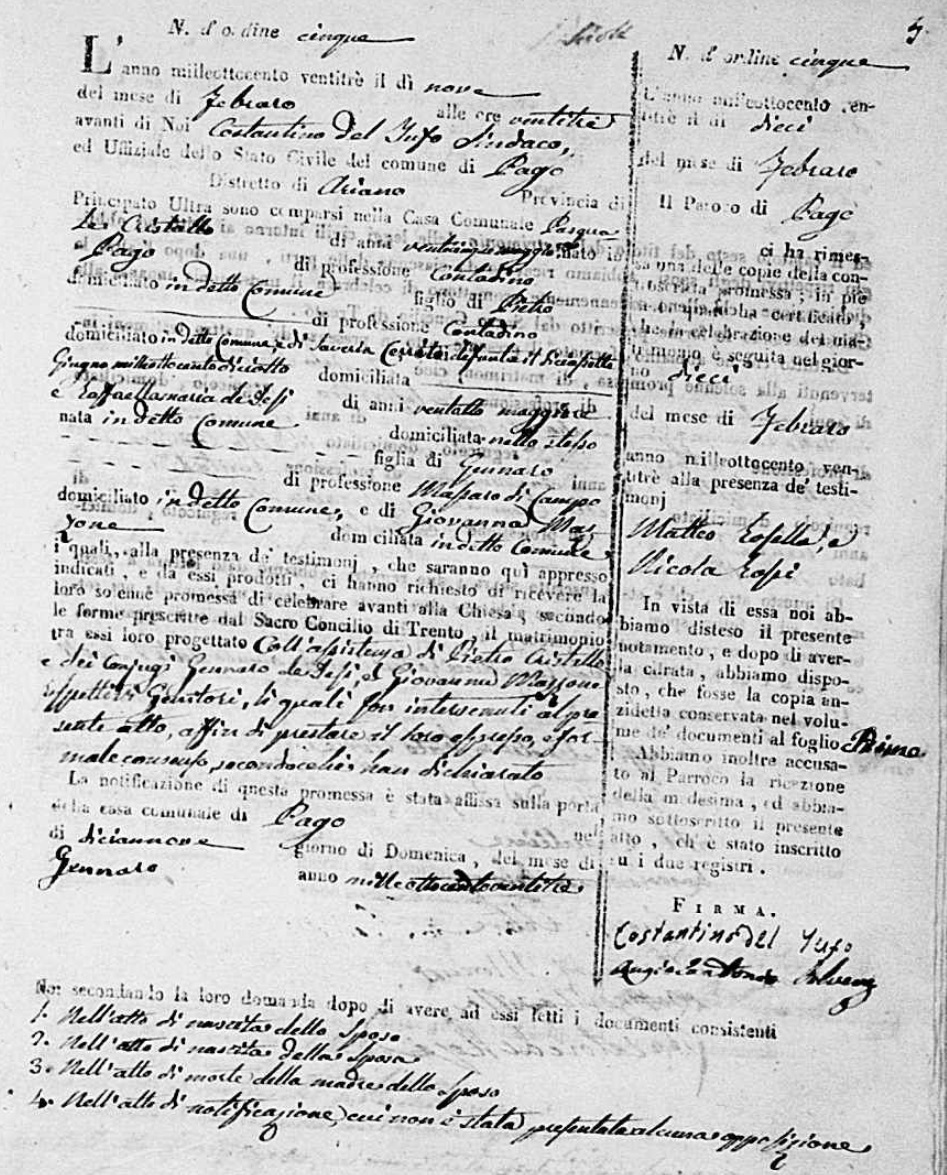 N. d'ordine cinque
L'anno milleottocento ventitrè il dì nove
del mese di Febraro alle ore ventitre
avanti di Noi Costantino del Sindaco,
ed Uffiziale dello Stato Civile del comune di Pago
Distretto di Ariano Provincia di
Principato Ultra sono comparsi nella Casa Comunale Pasqua
le Cristallo di anni venticinque maggiore nato in
Pago di professione Contadino
domiciliato in detto Comune figlio di Pietro
di professione Contadino
domiciliato in detto Comune, e di Saveria defunta il diciassette
Giugno milleottocento diciotto domiciliata
e Raffaella maria de di anni ventotto maggiore
nata in detto Comune domiciliata nello stesso
figlia di Gennaro
di professione Massaro di Campo
domiciliato in detto Comune, e di Giovanna Maz
zone domiciliata in detto Comune
i quali, alla presenza de' testimonj, che saranno quì appresso
indicati, e da essi prodotti, ci hanno richiesto di ricevere la
loro solenne promessa di celebrare avanti alla Chiesa, secondo
le forme prescritte dal Sacro Concilio di Trento, il matrimonio
tra essi loro progettato Coll'assistenza di Pietro Cristallo
e dei Conjugi Gennaro de e Giovanna Mazzone
rispettivi Genitori, li quali son intervenuti al pre
sente atto, affin di prestare il loro espresso, e for-
male consenso, secondocchè han dichiarato
La notificazione di questa promessa è stata affissa sulla porta
della casa comunale di Pago nel
di diciannove giorno di Domenica, del mese di
Gennaro anno milleottocentoventitre
Noi secondando la loro domanda dopo di avere ad essi letti i documenti consistenti
1. Nell'atto di nascita dello Sposo
2. Nell'atto di nascita della Sposa
3. Nell'atto di morte della madre dello Sposo
4. Nell'atto di notificazione, cui non è stata presentata alcuna opposizione
5
N. d'ordine cinque
L'anno milleottocento ven-
titrè il di dieci
del mese di Febraro
Il Paroco di Pago
ci ha rimes-
sa una delle copie della con-
troscritta promessa; in piè
di cui ha certificato,
che la celebrazione del ma-
trimonio è seguita nel gior-
no dieci
del mese di Febraro
anno milleottocento ven-
titrè alla presenza de' testi-
monj
Matteo e
Nicola
In vista di essa noi ab-
biamo disteso il presente
notamento, e dopo di aver-
la cifrata, abbiamo dispo-
sto, che fosse la copia an-
zidetta conservata nel volu-
me de' documenti al foglio Primo
Abbiamo inoltre accusa-
to al Parroco la ricezione
della medesima, ed abbia-
mo sottoscritto il presente
atto, ch'è stato inscritto
su i due registri.
FIRMA.
Costantino del